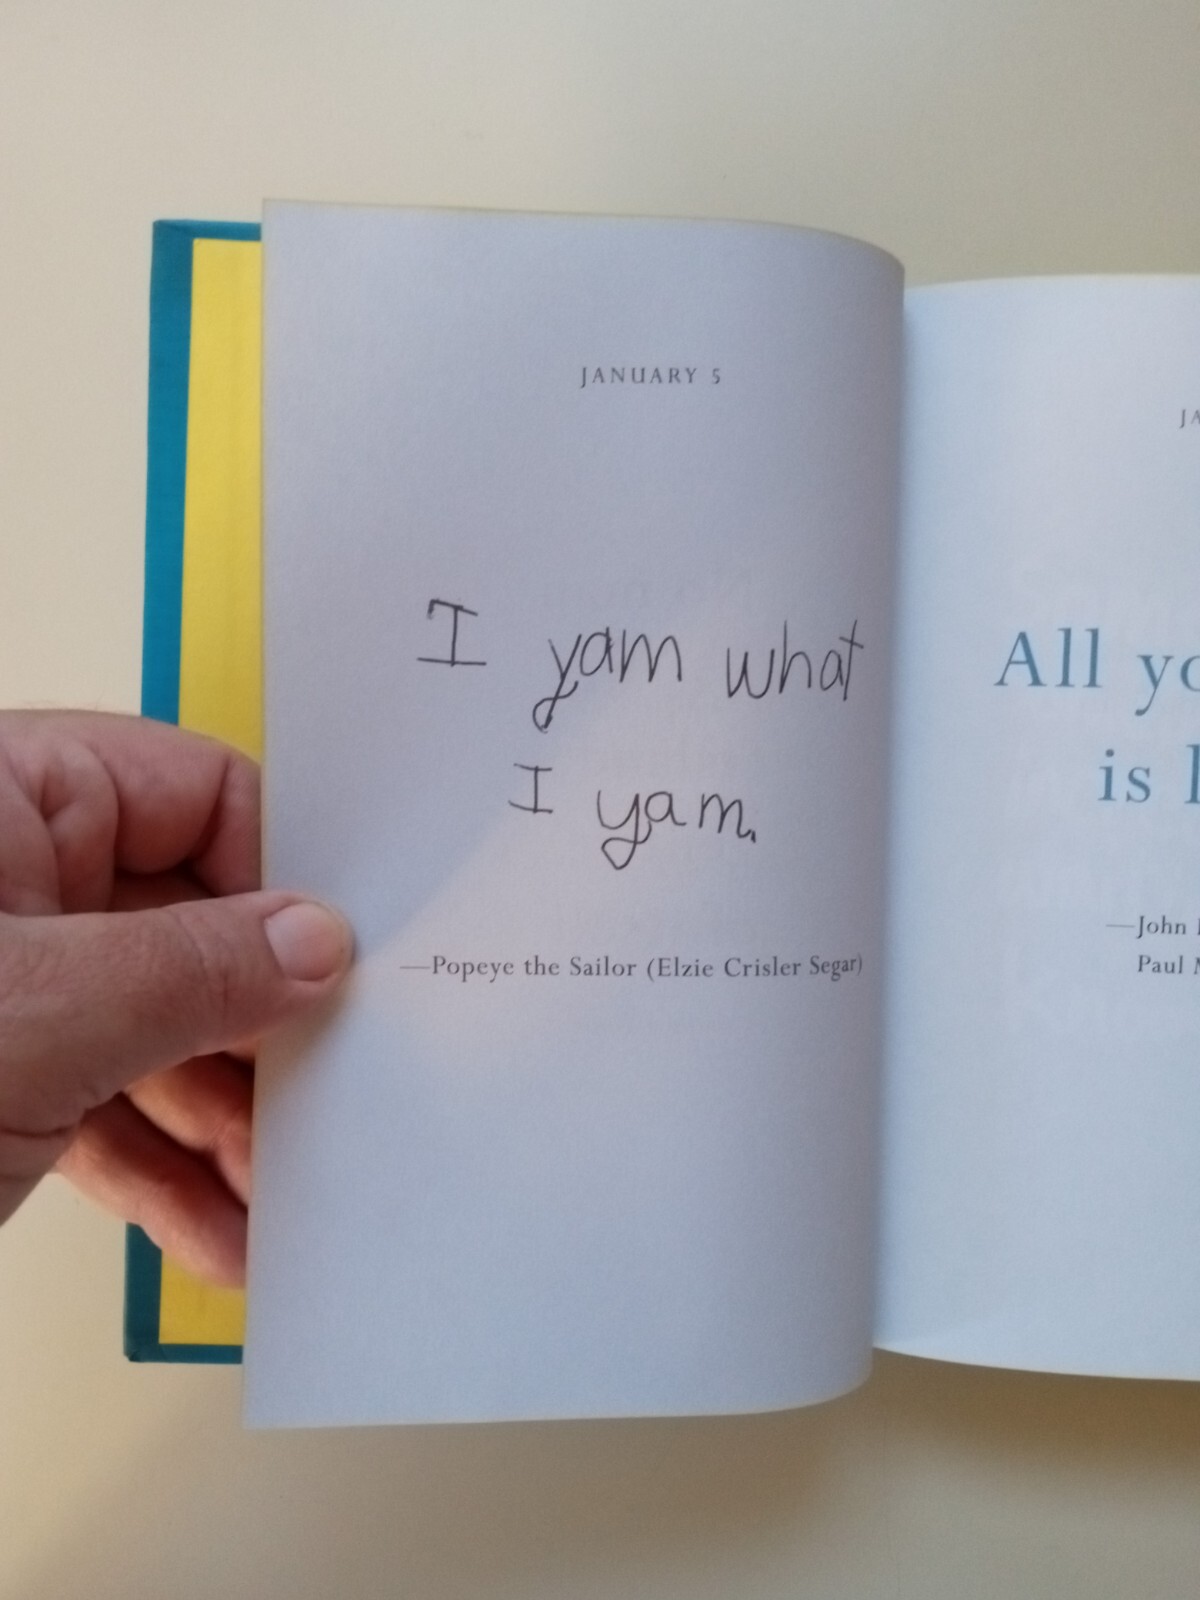 JANUARY 5
I yam what
I yam.
—Popeye the Sailor (Elzie Crisler Segar)
All
is
—John
Paul